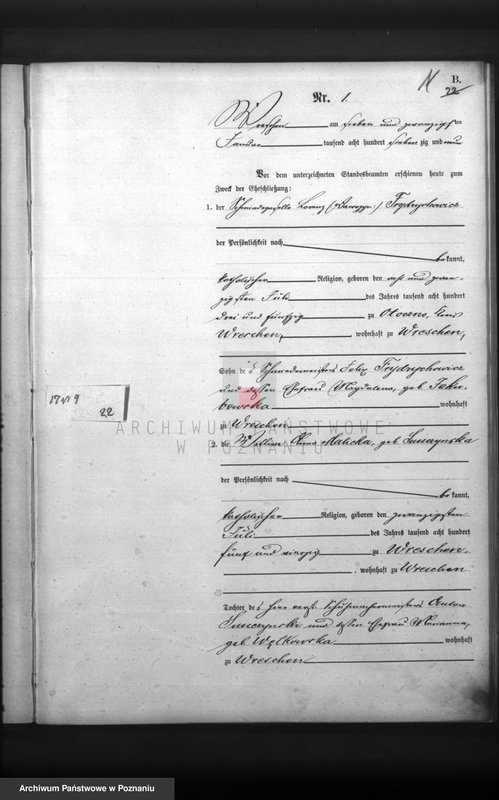 B.
22
Nr. 1.
Wreschen am sieben und zwanzigsten
Januar tausend acht hundert sieben zig und neun
Vor dem unterzeichneten Standesbeamten erschienen heute zum
Zweck der Eheschließung:
1. der Schmiedegeselle Lorenz (Wawrzyn) Frydrychowicz
der Persönlichkeit nach
bekannt,
katholischer Religion, geboren den acht und zwan-
zigsten Juli des Jahres tausend acht hundert
drei und fünfzig zu Kreis
Wreschen, wohnhaft zu Wreschen,
Sohn des Schmiedemeisters Felix Frydrychowicz
und dessen Ehefrau Magdalena, geb. Jaku-
bowska wohnhaft
zu Wreschen
2. die Wittwe Anna Malicka, geb. Smczynska
der Persönlichkeit nach
bekannt,
katholischer Religion, geboren den zwanzigsten
Juli des Jahres tausend acht hundert
fünf und vierzig zu Wreschen
, wohnhaft zu Wreschen
Tochter des hier verst. Schuhmachermeisters Anton
Smczynski und dessen Ehefrau Marianna,
geb. Welkowska wohnhaft
zu Wreschen
1879
22
ARCHIWUM PAŃSTWOWE
W POZNANIU
Archiwum Państwowe w Poznaniu
Archiwum Państwowe w Poznaniu